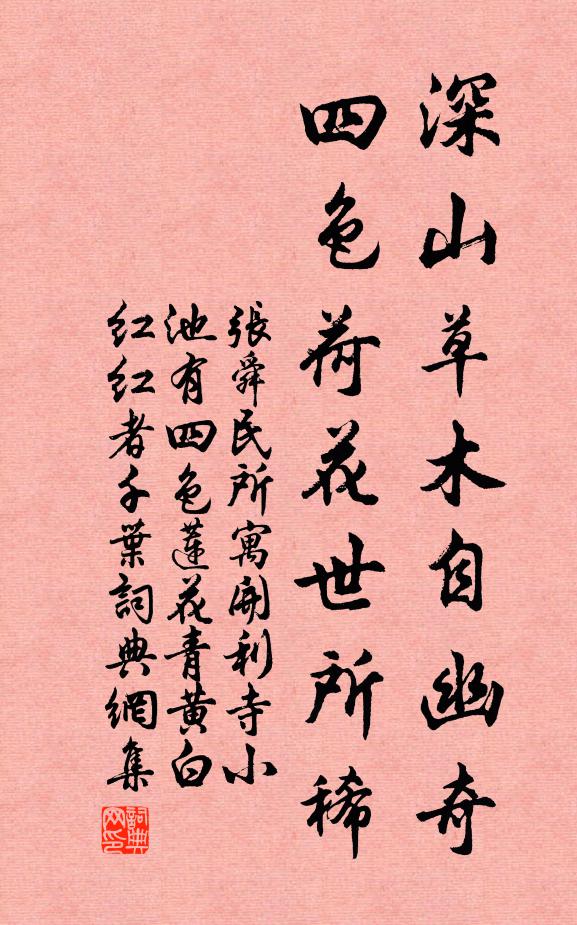 深山草木自幽奇
四色荷花世所稀
張舜民所寓開利寺小
池有四色蓮花青黃白
紅紅者千葉詞典網集
詞典网印